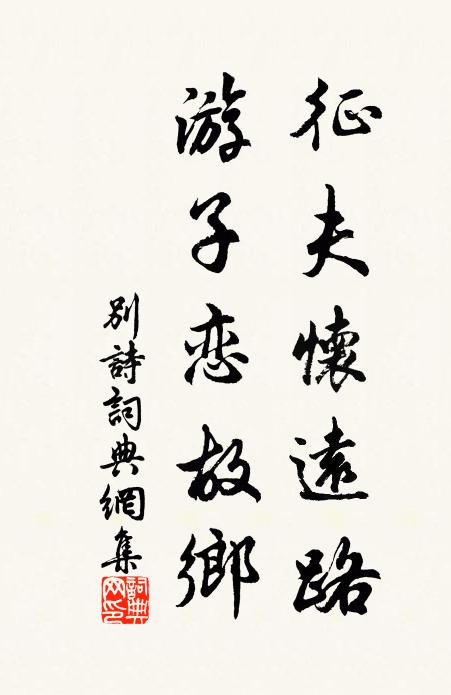 征夫懷遠路
游子恋故鄉
别詩詞典網集
詞典网印